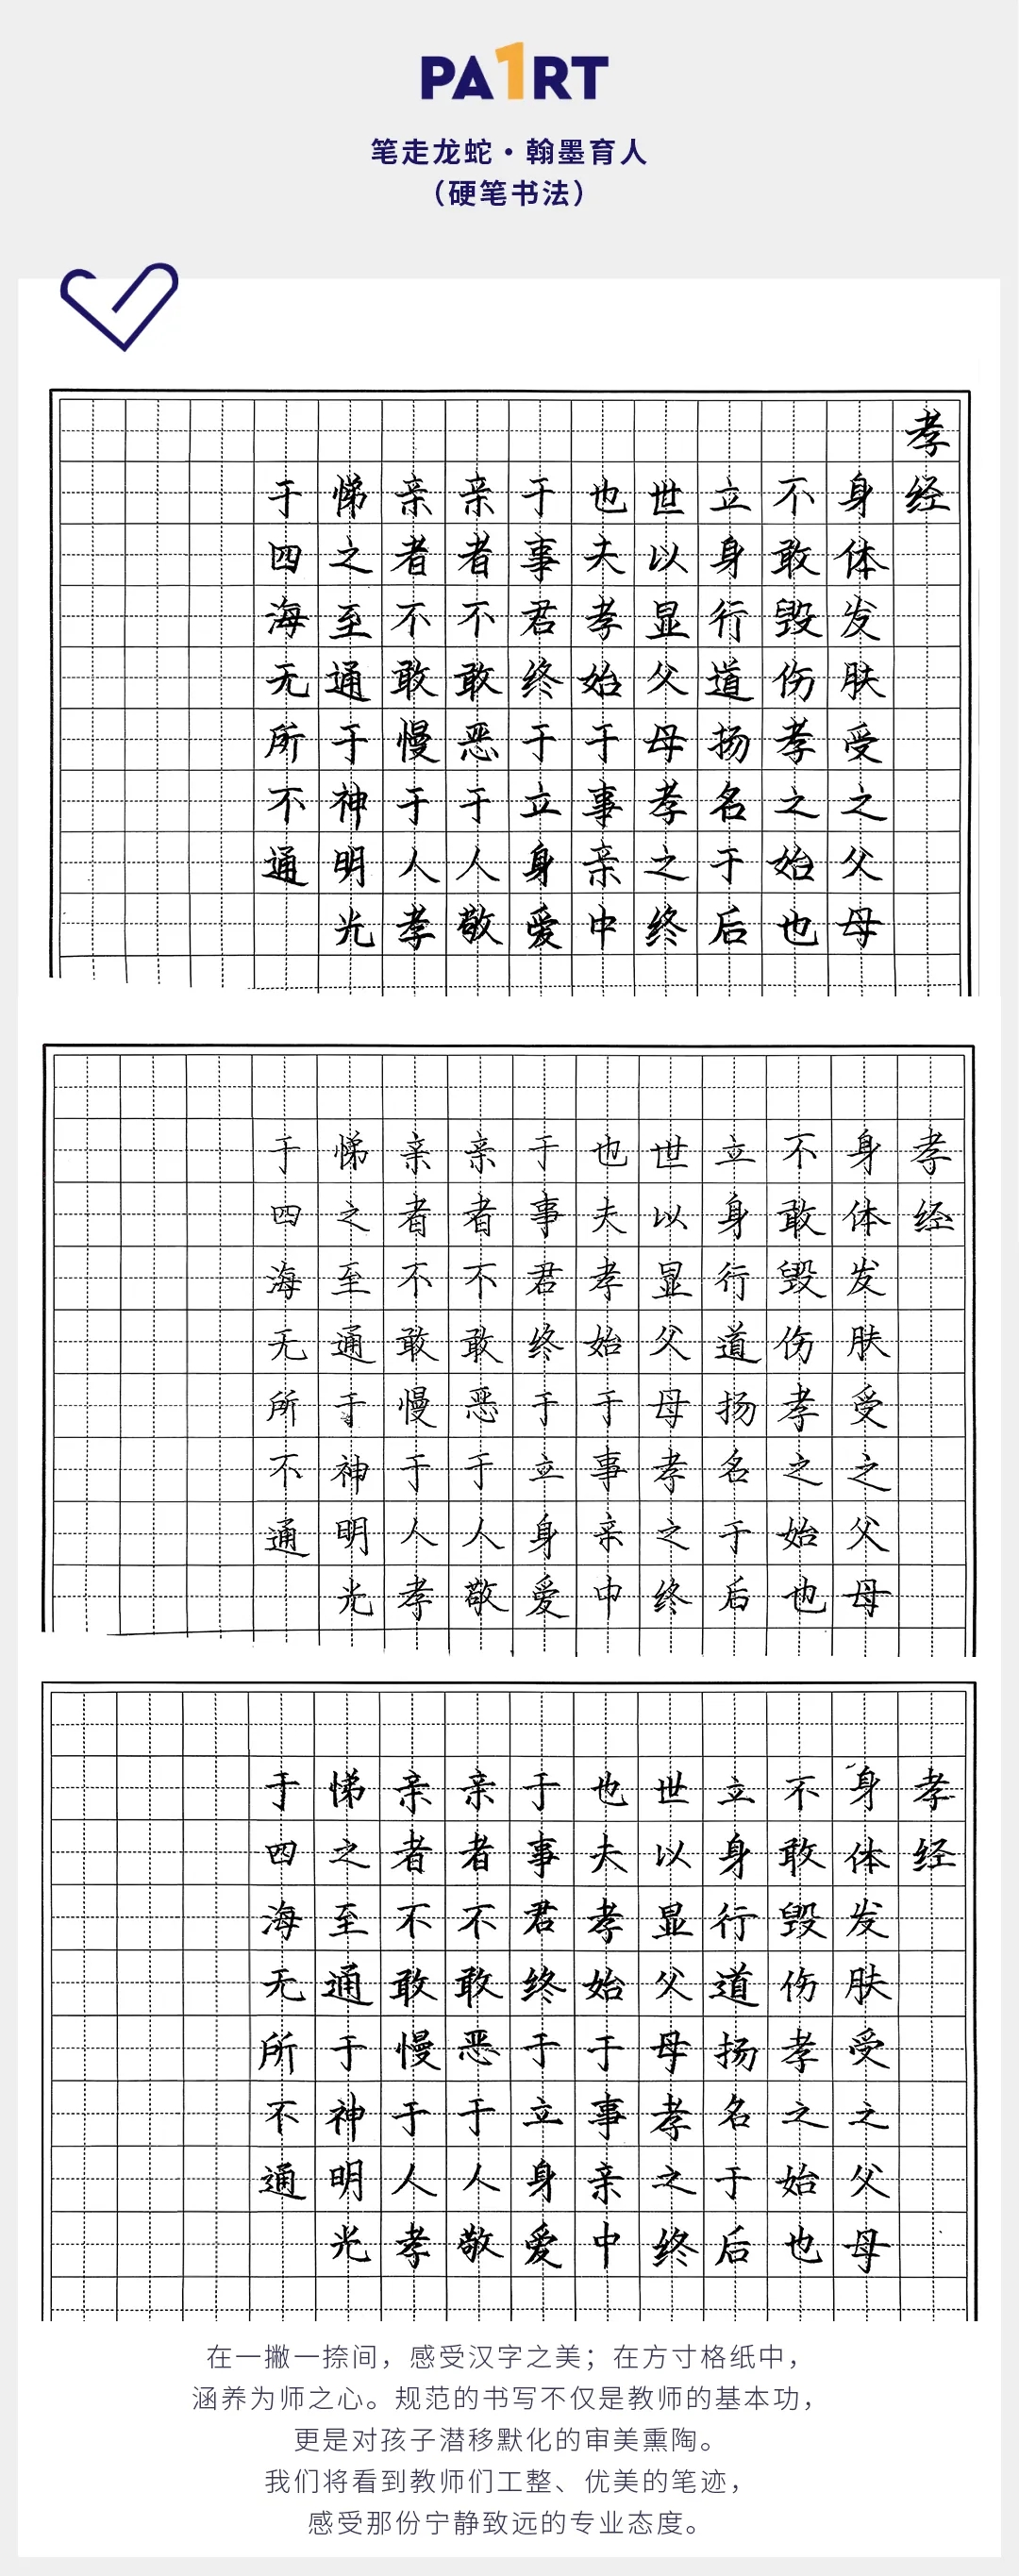 PA1RT
笔走龙蛇·翰墨育人
（硬笔书法）
孝经
身体发肤受之父母
不敢毁伤孝之始也
立身行道扬名于后
世以显父母孝之终
也夫孝始于事亲中
于事君终于立身爱
亲者不敢恶于人敬
亲者不敢慢于人孝
悌之至通于神明光
于四海无所不通
孝经
身体发肤受之父母
不敢毁伤孝之始也
立身行道扬名于后
世以显父母孝之终
也夫孝始于事亲中
于事君终于立身爱
亲者不敢恶于人敬
亲者不敢慢于人孝
悌之至通于神明光
于四海无所不通
孝经
身体发肤受之父母
不敢毁伤孝之始也
立身行道扬名于后
世以显父母孝之终
也夫孝始于事亲中
于事君终于立身爱
亲者不敢恶于人敬
亲者不敢慢于人孝
悌之至通于神明光
于四海无所不通
在一撇一捺间，感受汉字之美；在方寸格纸中，
涵养为师之心。规范的书写不仅是教师的基本功，
更是对孩子潜移默化的审美熏陶。
我们将看到教师们工整、优美的笔迹，
感受那份宁静致远的专业态度。